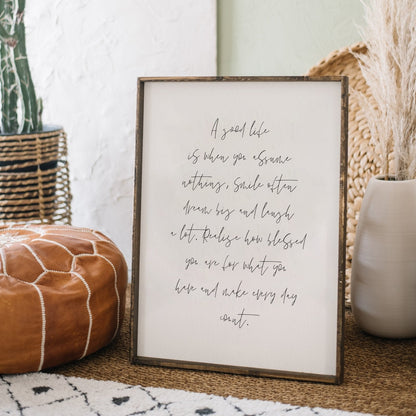 A good life
is when you assume
nothing, smile often
dream big and laugh
a lot. Realise how blessed
you are for what you
have and make every day
count.